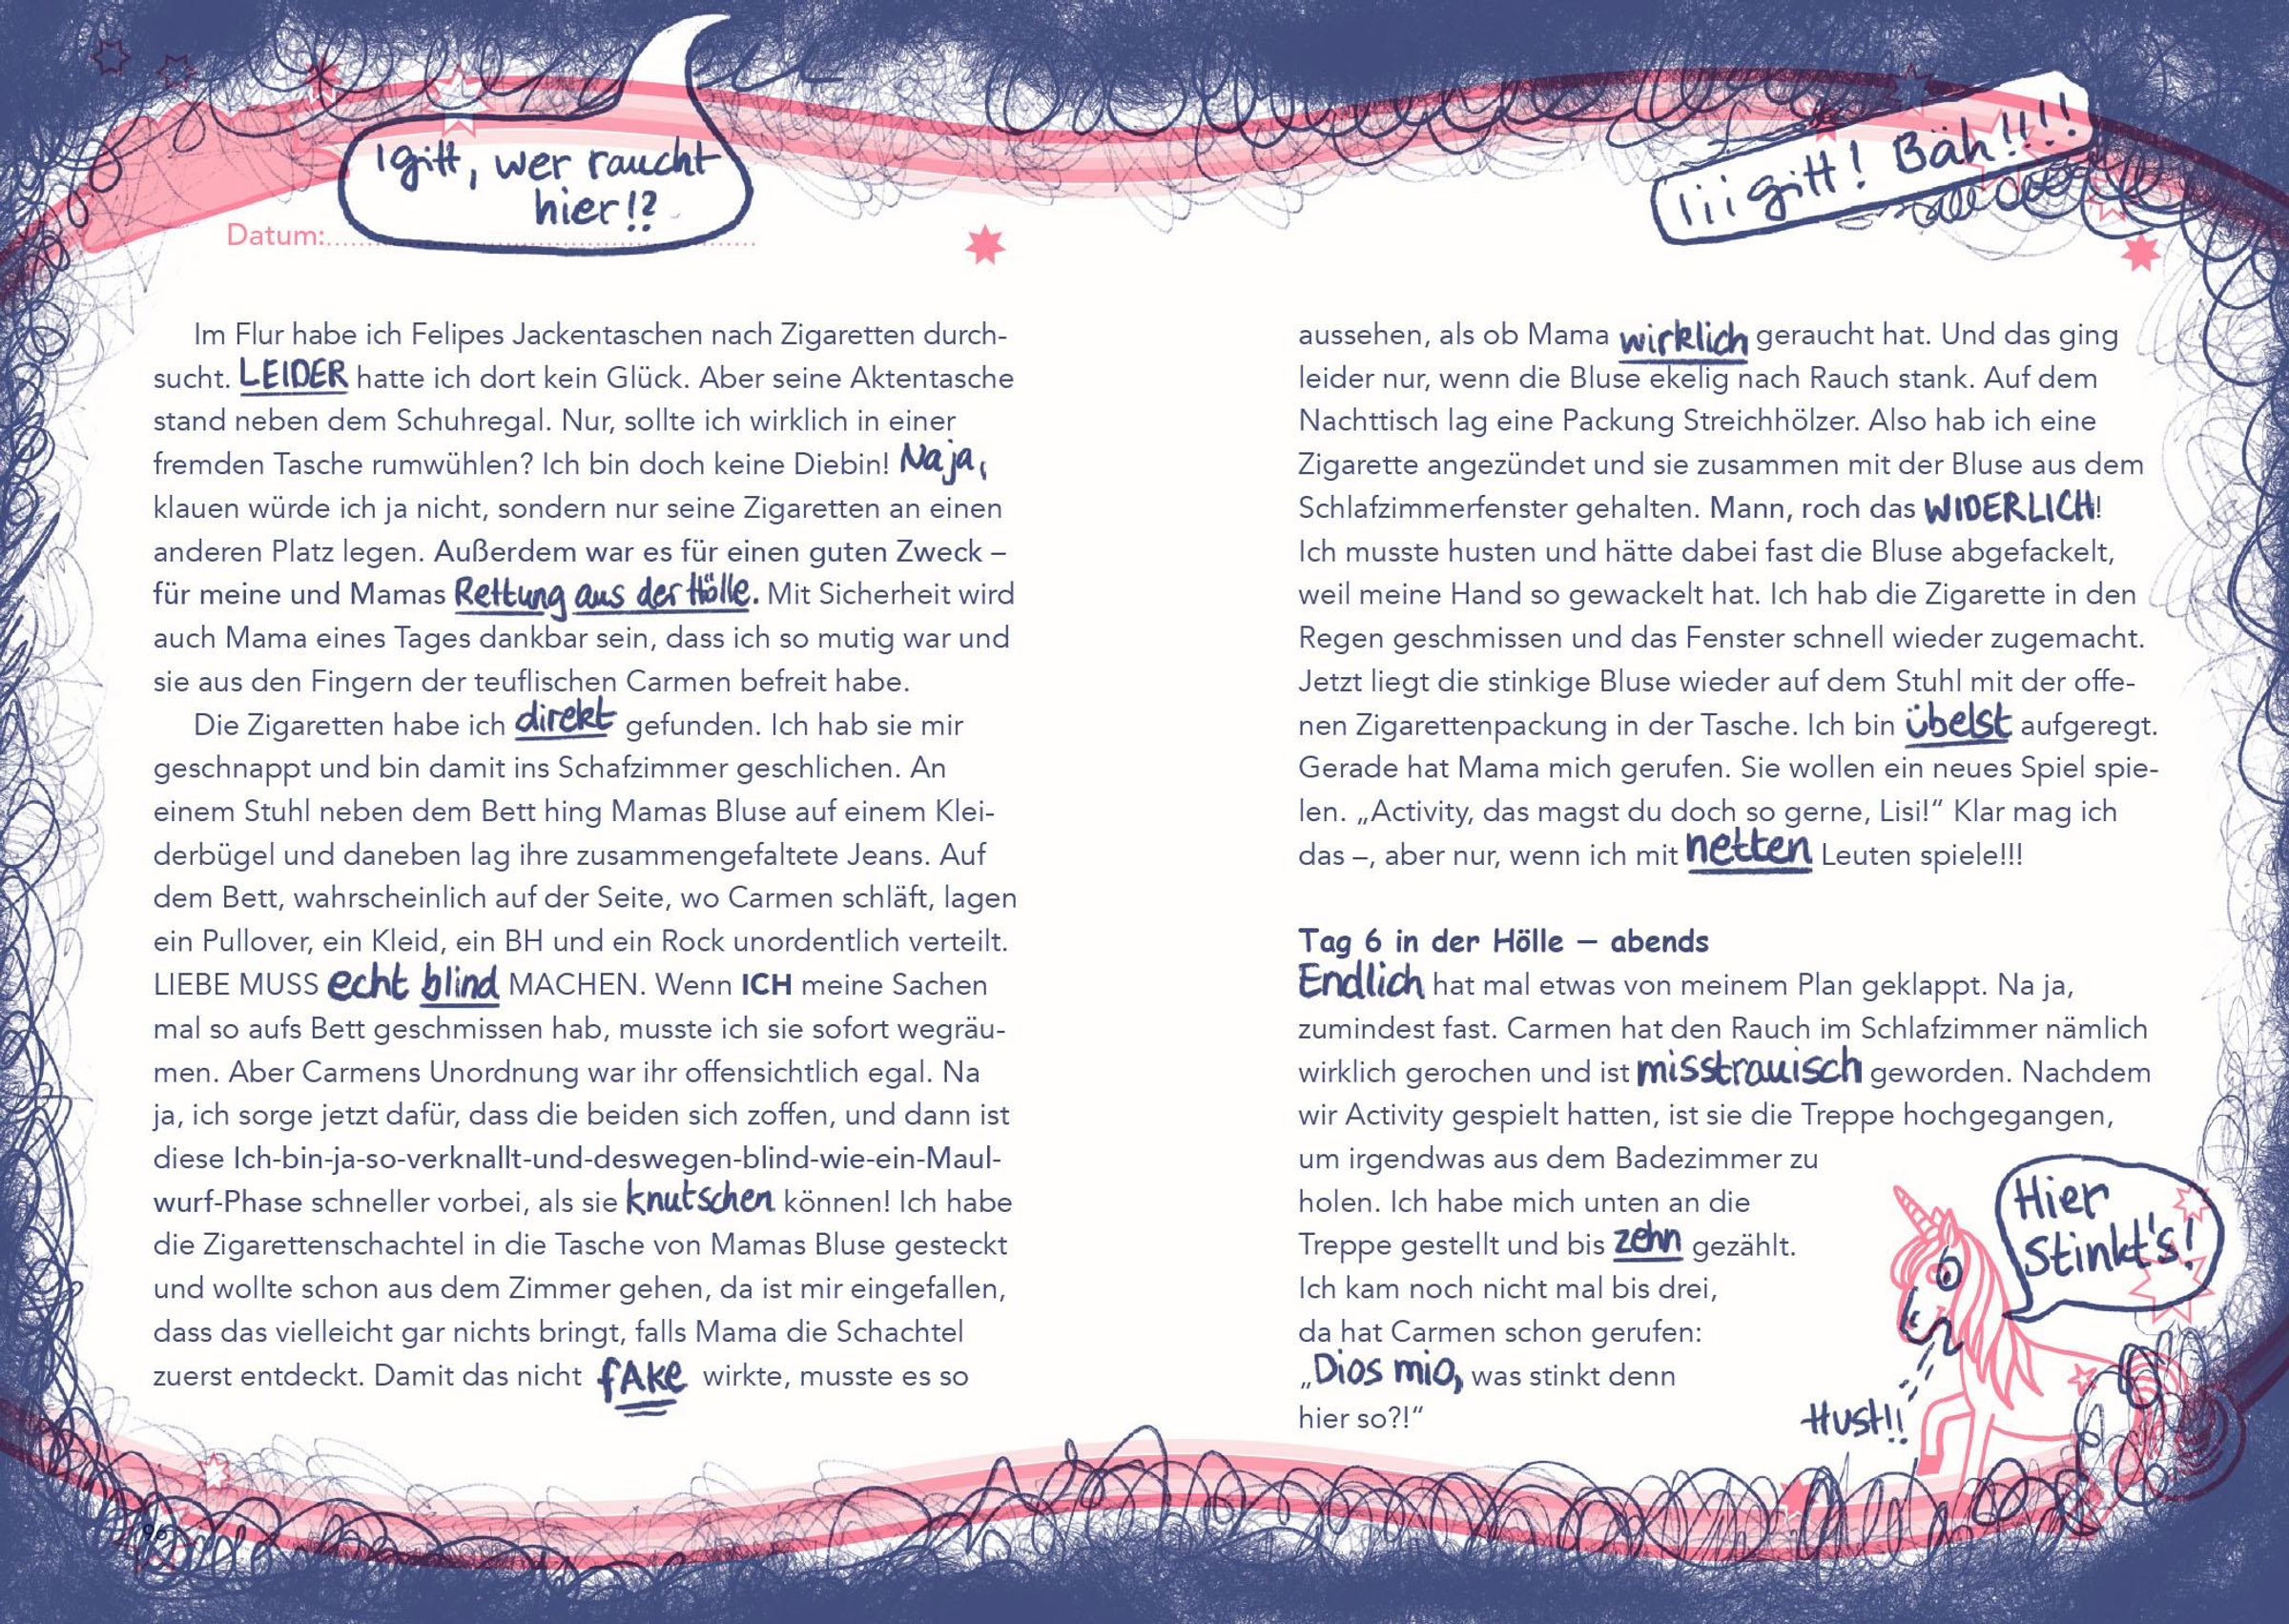 Igitt, wer raucht
hier!?
Datum:
Im Flur habe ich Felipes Jackentaschen nach Zigaretten durch-
sucht. LEIDER hatte ich dort kein Glück. Aber seine Aktentasche
stand neben dem Schuhregal. Nur, sollte ich wirklich in einer
fremden Tasche rumwühlen? Ich bin doch keine Diebin! Na ja,
klauen würde ich ja nicht, sondern nur seine Zigaretten an einen
anderen Platz legen. Außerdem war es für einen guten Zweck –
für meine und Mamas Rettung aus der Hölle. Mit Sicherheit wird
auch Mama eines Tages dankbar sein, dass ich so mutig war und
sie aus den Fingern der teuflischen Carmen befreit habe.
Die Zigaretten habe ich direkt gefunden. Ich hab sie mir
geschnappt und bin damit ins Schafzimmer geschlichen. An
einem Stuhl neben dem Bett hing Mamas Bluse auf einem Klei-
derbügel und daneben lag ihre zusammengefaltete Jeans. Auf
dem Bett, wahrscheinlich auf der Seite, wo Carmen schläft, lagen
ein Pullover, ein Kleid, ein BH und ein Rock unordentlich verteilt.
LIEBE MUSS echt blind MACHEN. Wenn ICH meine Sachen
mal so aufs Bett geschmissen hab, musste ich sie sofort wegräu-
men. Aber Carmens Unordnung war ihr offensichtlich egal. Na
ja, ich sorge jetzt dafür, dass die beiden sich zoffen, und dann ist
diese Ich-bin-ja-so-verknallt-und-deswegen-blind-wie-ein-Maul-
wurf-Phase schneller vorbei, als sie knutschen können! Ich habe
die Zigarettenschachtel in die Tasche von Mamas Bluse gesteckt
und wollte schon aus dem Zimmer gehen, da ist mir eingefallen,
dass das vielleicht gar nichts bringt, falls Mama die Schachtel
zuerst entdeckt. Damit das nicht fAKe wirkte, musste es so
96
Iiigitt! Bäh!!!!
aussehen, als ob Mama wirklich geraucht hat. Und das ging
leider nur, wenn die Bluse ekelig nach Rauch stank. Auf dem
Nachttisch lag eine Packung Streichhölzer. Also hab ich eine
Zigarette angezündet und sie zusammen mit der Bluse aus dem
Schlafzimmerfenster gehalten. Mann, roch das WIDERLICH!
Ich musste husten und hätte dabei fast die Bluse abgefackelt,
weil meine Hand so gewackelt hat. Ich hab die Zigarette in den
Regen geschmissen und das Fenster schnell wieder zugemacht.
Jetzt liegt die stinkige Bluse wieder auf dem Stuhl mit der offe-
nen Zigarettenpackung in der Tasche. Ich bin übelst aufgeregt.
Gerade hat Mama mich gerufen. Sie wollen ein neues Spiel spie-
len. „Activity, das magst du doch so gerne, Lisi!“ Klar mag ich
das –, aber nur, wenn ich mit netten Leuten spiele!!!
Tag 6 in der Hölle – abends
Endlich hat mal etwas von meinem Plan geklappt. Na ja,
zumindest fast. Carmen hat den Rauch im Schlafzimmer nämlich
wirklich gerochen und ist misstrauisch geworden. Nachdem
wir Activity gespielt hatten, ist sie die Treppe hochgegangen,
um irgendwas aus dem Badezimmer zu
holen. Ich habe mich unten an die
Treppe gestellt und bis zehn gezählt.
Ich kam noch nicht mal bis drei,
da hat Carmen schon gerufen:
„Dios mio, was stinkt denn
hier so?!“
Hier
Stinkt's!
Hust!!